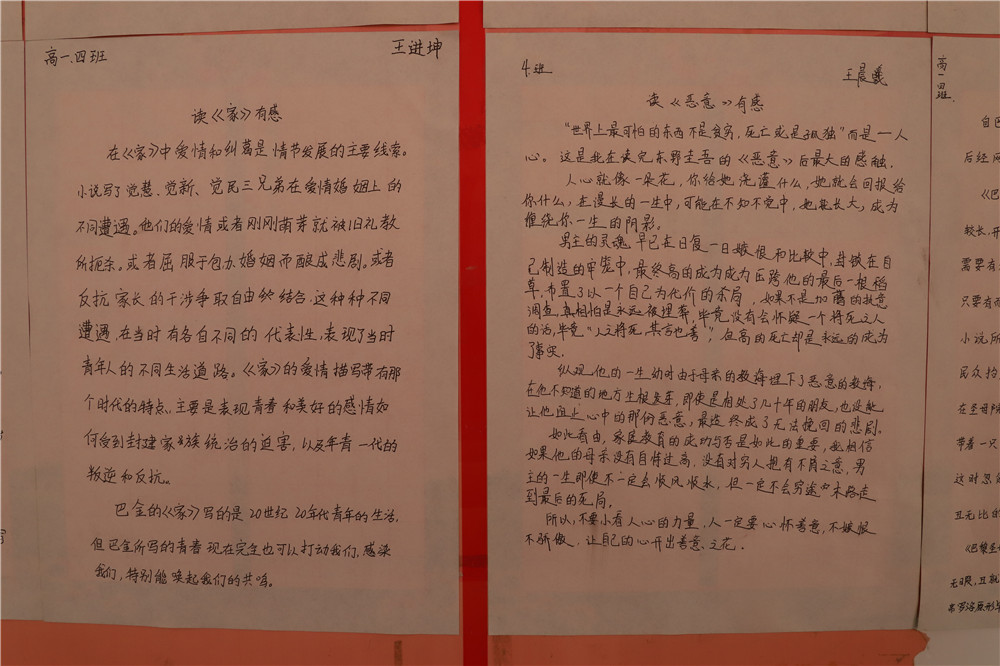 高一.四班
王进坤
读《家》有感
在《家》中爱情和纠葛是情节发展的主要线索。
小说写了觉慧、觉新、觉民三兄弟在爱情婚姻上的
不同遭遇。他们的爱情或者刚刚萌芽就被旧礼教
所扼杀。或者屈服于包办婚姻而酿成悲剧。或者
反抗家长的干涉争取自由终结合.这种种不同
遭遇,在当时有各自不同的代表性,表现了当时
青年人的不同生活道路。《家》的爱情描写带有那
个时代的特点、主要是表现青春和美好的感情如
何受到封建家族统治的迫害,以及年青一代的
叛逆和反抗。
巴金的《家》写的是20世纪20年代青年的生活,
但巴金所写的青春现在完全也可以打动我们,感染
我们,特别能唤起我们的共鸣。
4.班
王晨曦
读《恶意》有感
“世界上最可怕的东西不是贫穷,死亡或是孤独”而是一人
心。这是我在读完东野圭吾的《恶意》后最大的感触.
人心就像一朵花,你给她浇灌什么,她就会回报给
你什么,在漫长的一生中,可能在不知不觉中,她茁长大,成为
缠绕你一生的阴影。
男主的灵魂早已在日复一日嫉恨和比较中,封锁在自
己制造的牢笼中,最终高的成为成为压跨他的最后一根稻
草,布置了以一个自己为代价的杀局,如果不是加贺的执意
调查,真相怕是永远被埋葬,毕竟没有会怀疑一个将死之人
的话,毕竟“人之将死,其言也善”,但高的死亡却是永远的成为
了事实.
纵观他的一生幼时由于母亲的教诲埋下了恶意的教诲,
在他不知道的地方生根发芽,即使是相处了几十年的朋友,也没能
让他阻止心中的那份恶意,最造终成了无法挽回的悲剧.
如此看由,家庭教育的成功与否是如此的重要,我相信
如果他的母亲没有自恃过高,没有对穷人抱有不屑之意,男
主的一生即使不一定会顺风顺水,但一定不会穷途末路走
到最后的死局.
所以,不要小看人心的力量,人一定要心怀善意,不嫉恨
不骄傲,让自己的心开出善意之花.
高一四班.
自巴
后经阅
《巴
较长,开
需要有
只要有
小说所
民众拾
在圣母院
带着一只
这时忍
且无比的
《巴黎圣
无日暇,且孰